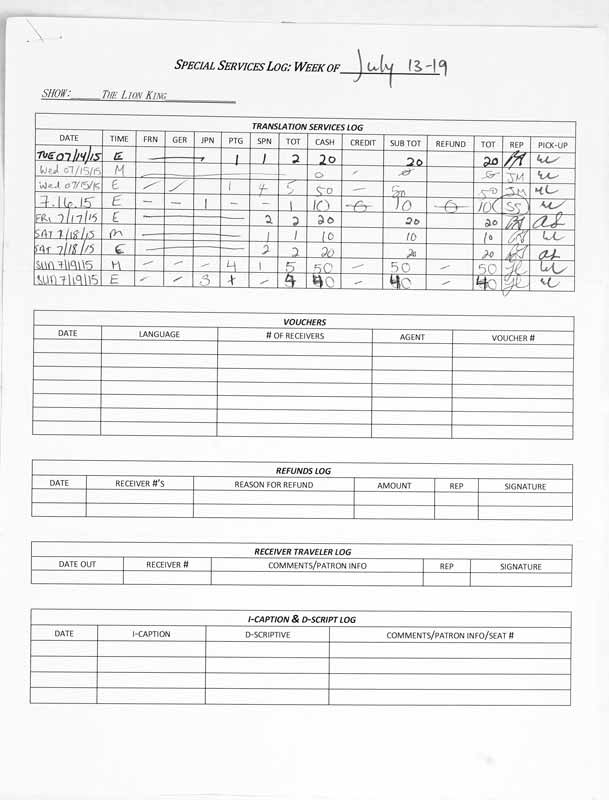 SPECIAL SERVICES LOG: WEEK OF July 13-19
SHOW: THE LION KING
TRANSLATION SERVICES LOG
DATE TIME FRN GER JPN PTG SPN TOT CASH CREDIT SUB TOT REFUND TOT REP PICK-UP
TUE 07/14/15 E 1 1 2 20 20 20
Wed 07/15/15 M 0 0 0 JM
Wed 07/15/15 E - - 1 4 5 50 - 50 50 JM
7.16.15 E - - 1 - - 1 10 0 10 0 10 SS
FRI 7/17/15 E 2 2 20 20 20
SAT 7/18/15 M 1 1 10 10 10
SAT 7/18/15 E 2 2 20 20 20
SUN 7/19/15 M - - - 4 1 5 50 - 50 - 50
SUN 7/19/15 E - - 3 - 4 40 - 40 - 40
VOUCHERS
DATE LANGUAGE # OF RECEIVERS AGENT VOUCHER #
REFUNDS LOG
DATE RECEIVER #'S REASON FOR REFUND AMOUNT REP SIGNATURE
RECEIVER TRAVELER LOG
DATE OUT RECEIVER # COMMENTS/PATRON INFO REP SIGNATURE
I-CAPTION & D-SCRIPT LOG
DATE I-CAPTION D-SCRIPTIVE COMMENTS/PATRON INFO/SEAT #